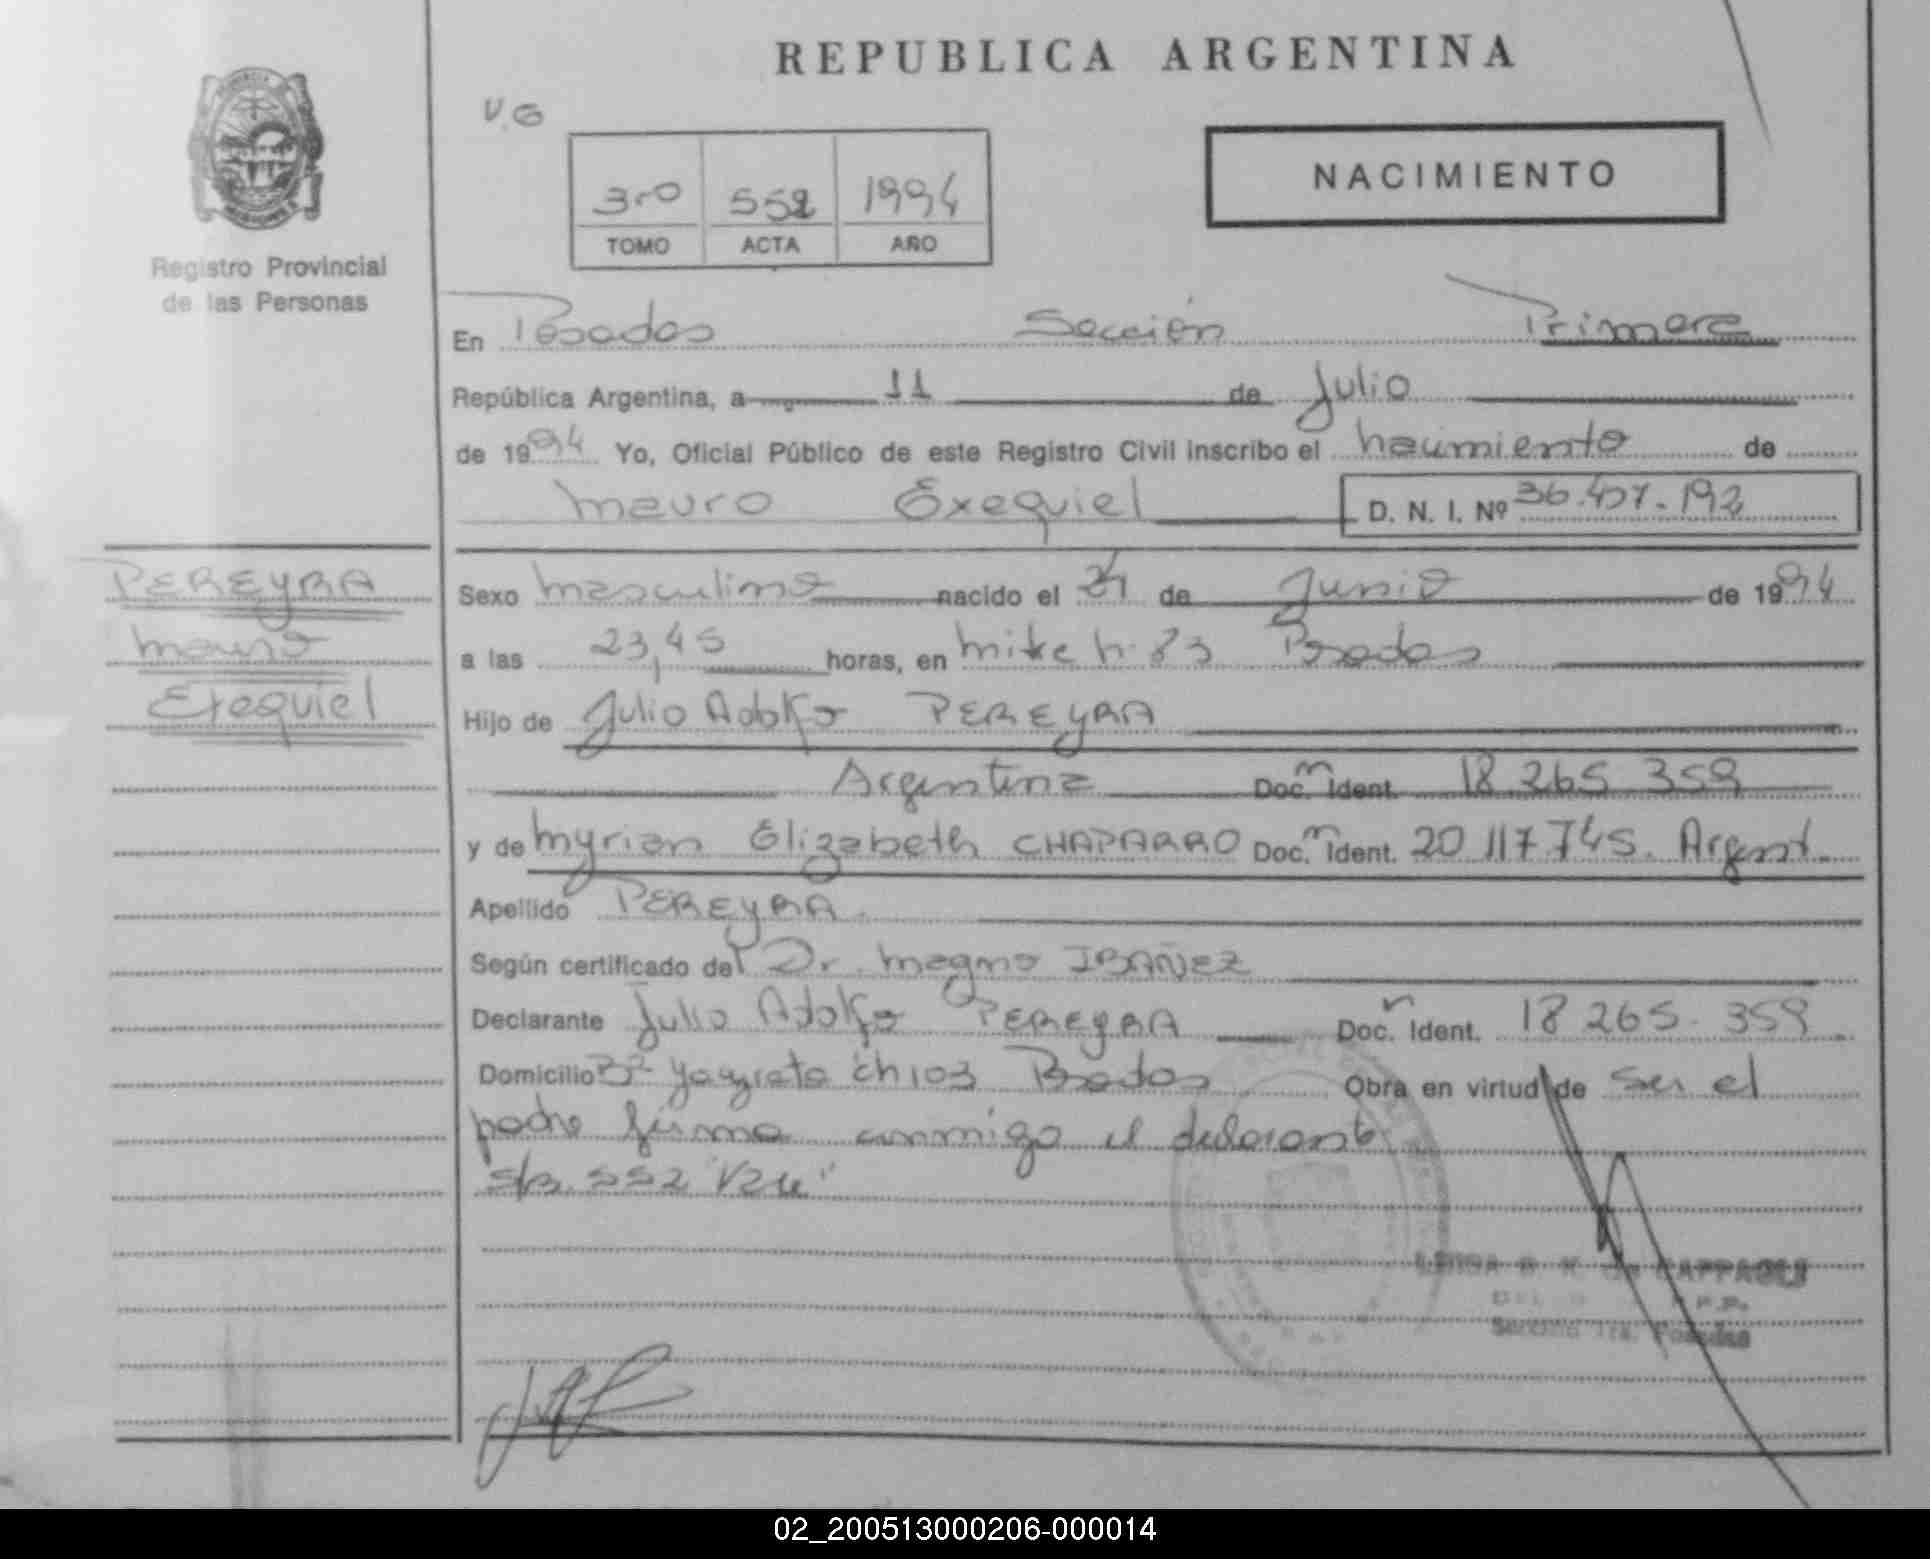 REPUBLICA ARGENTINA
V.G
NACIMIENTO
3ro 552 1994
TOMO ACTA AÑO
Registro Provincial
de las Personas
En Posadas Sección Primera
República Argentina, a 11 de Julio
de 1994 Yo, Oficial Público de este Registro Civil inscribo el nacimiento de
Mauro Exequiel D. N. I. Nº 36.457.192
PEREYRA
Mauro
Exequiel
Sexo masculino nacido el de Junio de 1994
a las 23,45 horas, en Posadas
Hijo de Julio Adolfo PEREYRA
Argentina Doc. Ident. 18 265 359
y de Myrian Elizabeth CHAPARRO Doc. Ident. 20 117.745. Argent.
Apellido PEREYRA
Según certificado del Dr. Magno IBAÑEZ
Declarante Julio Adolfo PEREYRA Doc. Ident. 18 265. 359
Domicilio Bº Yacyreta Ch 103 Posadas Obra en virtud de ser el
padre firma conmigo el declarante
552
Sección 1ra. Posadas
02_200513000206-000014